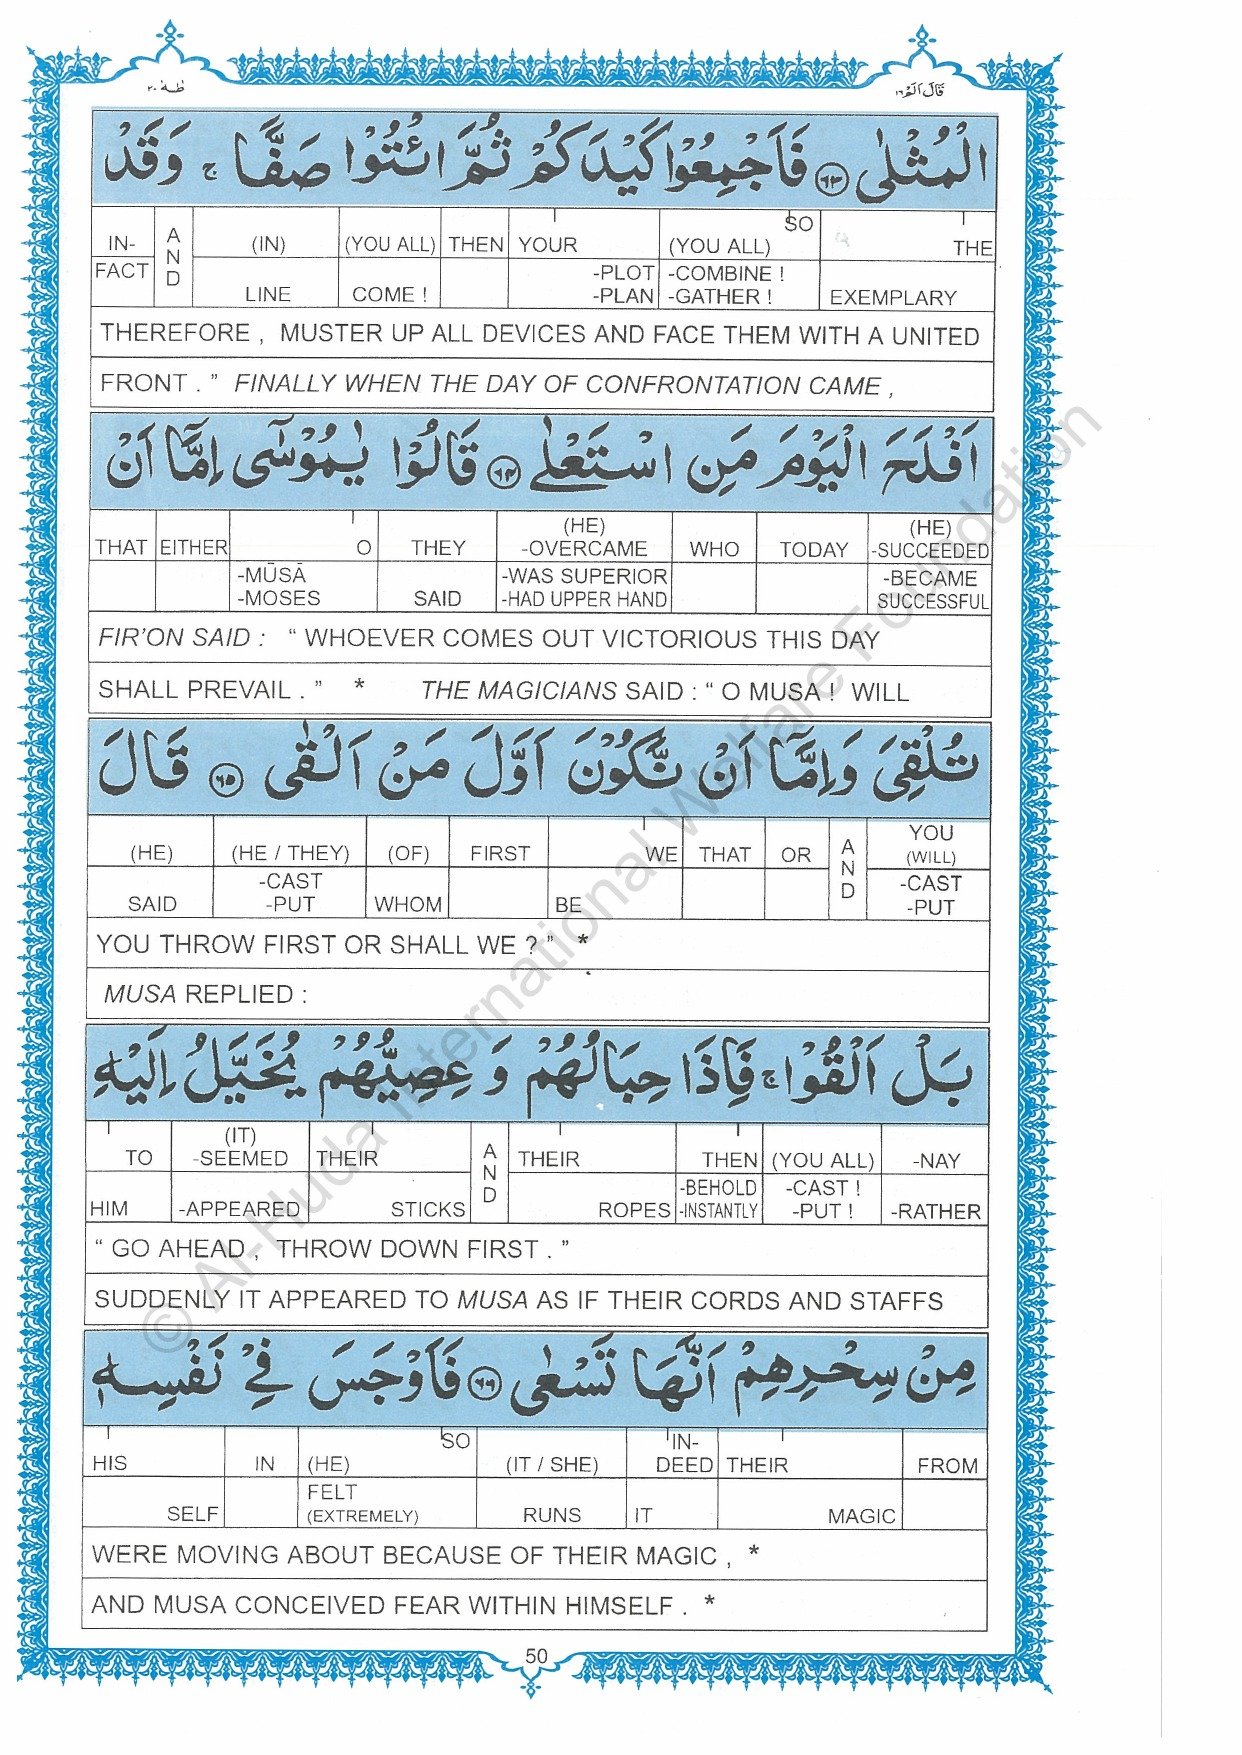 طٰهٰ ٢٠
قَالَ اَلَمْ ١٦
الْمُثْلٰى ٦٣ فَاَجْمِعُوْا كَيْدَكُمْ ثُمَّ ائْتُوْا صَفًّا ج وَقَدْ
IN- AND (IN) (YOU ALL) THEN YOUR (YOU ALL) SO THE
FACT LINE COME ! -PLOT -PLAN -COMBINE ! -GATHER ! EXEMPLARY
THEREFORE , MUSTER UP ALL DEVICES AND FACE THEM WITH A UNITED
FRONT . ” FINALLY WHEN THE DAY OF CONFRONTATION CAME ,
اَفْلَحَ الْيَوْمَ مَنِ اسْتَعْلٰى ٦٤ قَالُوْا يٰمُوْسٰٓى اِمَّآ اَنْ
THAT EITHER O THEY (HE) -OVERCAME WHO TODAY (HE) -SUCCEEDED
-MŪSĀ -MOSES SAID -WAS SUPERIOR -HAD UPPER HAND -BECAME SUCCESSFUL
FIR’ON SAID : “ WHOEVER COMES OUT VICTORIOUS THIS DAY
SHALL PREVAIL . ” * THE MAGICIANS SAID : “ O MUSA ! WILL
تُلْقِىَ وَاِمَّآ اَنْ نَّكُوْنَ اَوَّلَ مَنْ اَلْقٰى ٦٥ قَالَ
(HE) (HE / THEY) (OF) FIRST WE THAT OR AND YOU (WILL)
SAID -CAST -PUT WHOM BE -CAST -PUT
YOU THROW FIRST OR SHALL WE ? ” *
MUSA REPLIED :
بَلْ اَلْقُوْا ج فَاِذَا حِبَالُهُمْ وَ عِصِيُّهُمْ يُخَيَّلُ اِلَيْهِ
TO (IT) -SEEMED THEIR AND THEIR THEN (YOU ALL) -NAY
HIM -APPEARED STICKS ROPES -BEHOLD -INSTANTLY -CAST ! -PUT ! -RATHER
“ GO AHEAD , THROW DOWN FIRST . ”
SUDDENLY IT APPEARED TO MUSA AS IF THEIR CORDS AND STAFFS
مِنْ سِحْرِهِمْ اَنَّهَا تَسْعٰى ٦٦ فَاَوْجَسَ فِىْ نَفْسِهٖ
HIS IN (HE) SO (IT / SHE) IN-DEED THEIR FROM
SELF FELT (EXTREMELY) RUNS IT MAGIC
WERE MOVING ABOUT BECAUSE OF THEIR MAGIC , *
AND MUSA CONCEIVED FEAR WITHIN HIMSELF . *
50
© Al-Huda International Welfare Foundation